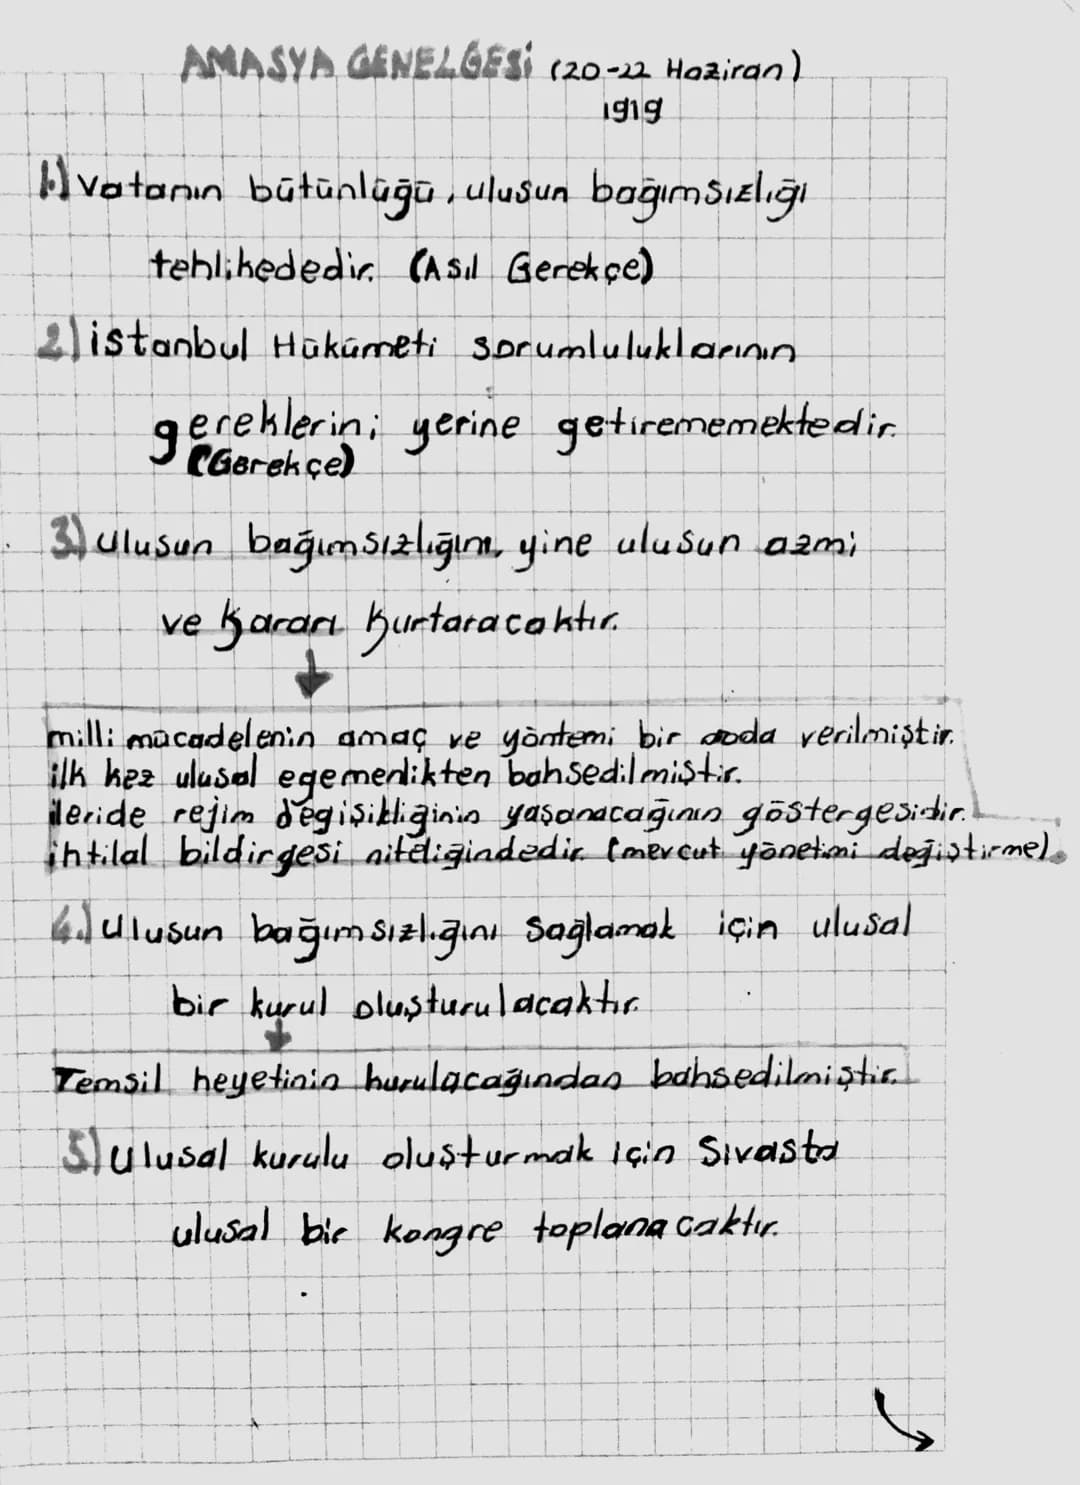 AMASYA GENELGESİ (20-22 Haziran)
1919
1.) vatanın bütünlüğü, ulusun bağımsızlığı
tehlikededir. (Asıl Gerekçe)
2) istanbul Hükümeti sorumluluklarının
gereklerini yerine getirememektedir.
(Gerekçe)
3.) ulusun bağımsızlığını, yine ulusun azmi
ve kararı kurtaracaktır.
milli mücadelenin amaç ve yöntemi bir arada verilmiştir.
ilk kez ulusal egemenlikten bahsedilmiştir.
ileride rejim değişikliğinin yaşanacağının göstergesidir.
ihtilal bildirgesi niteliğindedir. (mevcut yönetimi değiştirme).
4.) Ulusun bağımsızlığını sağlamak için ulusal
bir kurul oluşturulacaktır.
Temsil heyetinin kurulacağından bahsedilmiştir.
5) Ulusal kurulu oluşturmak için Sivasta
ulusal bir kongre toplanacaktır.